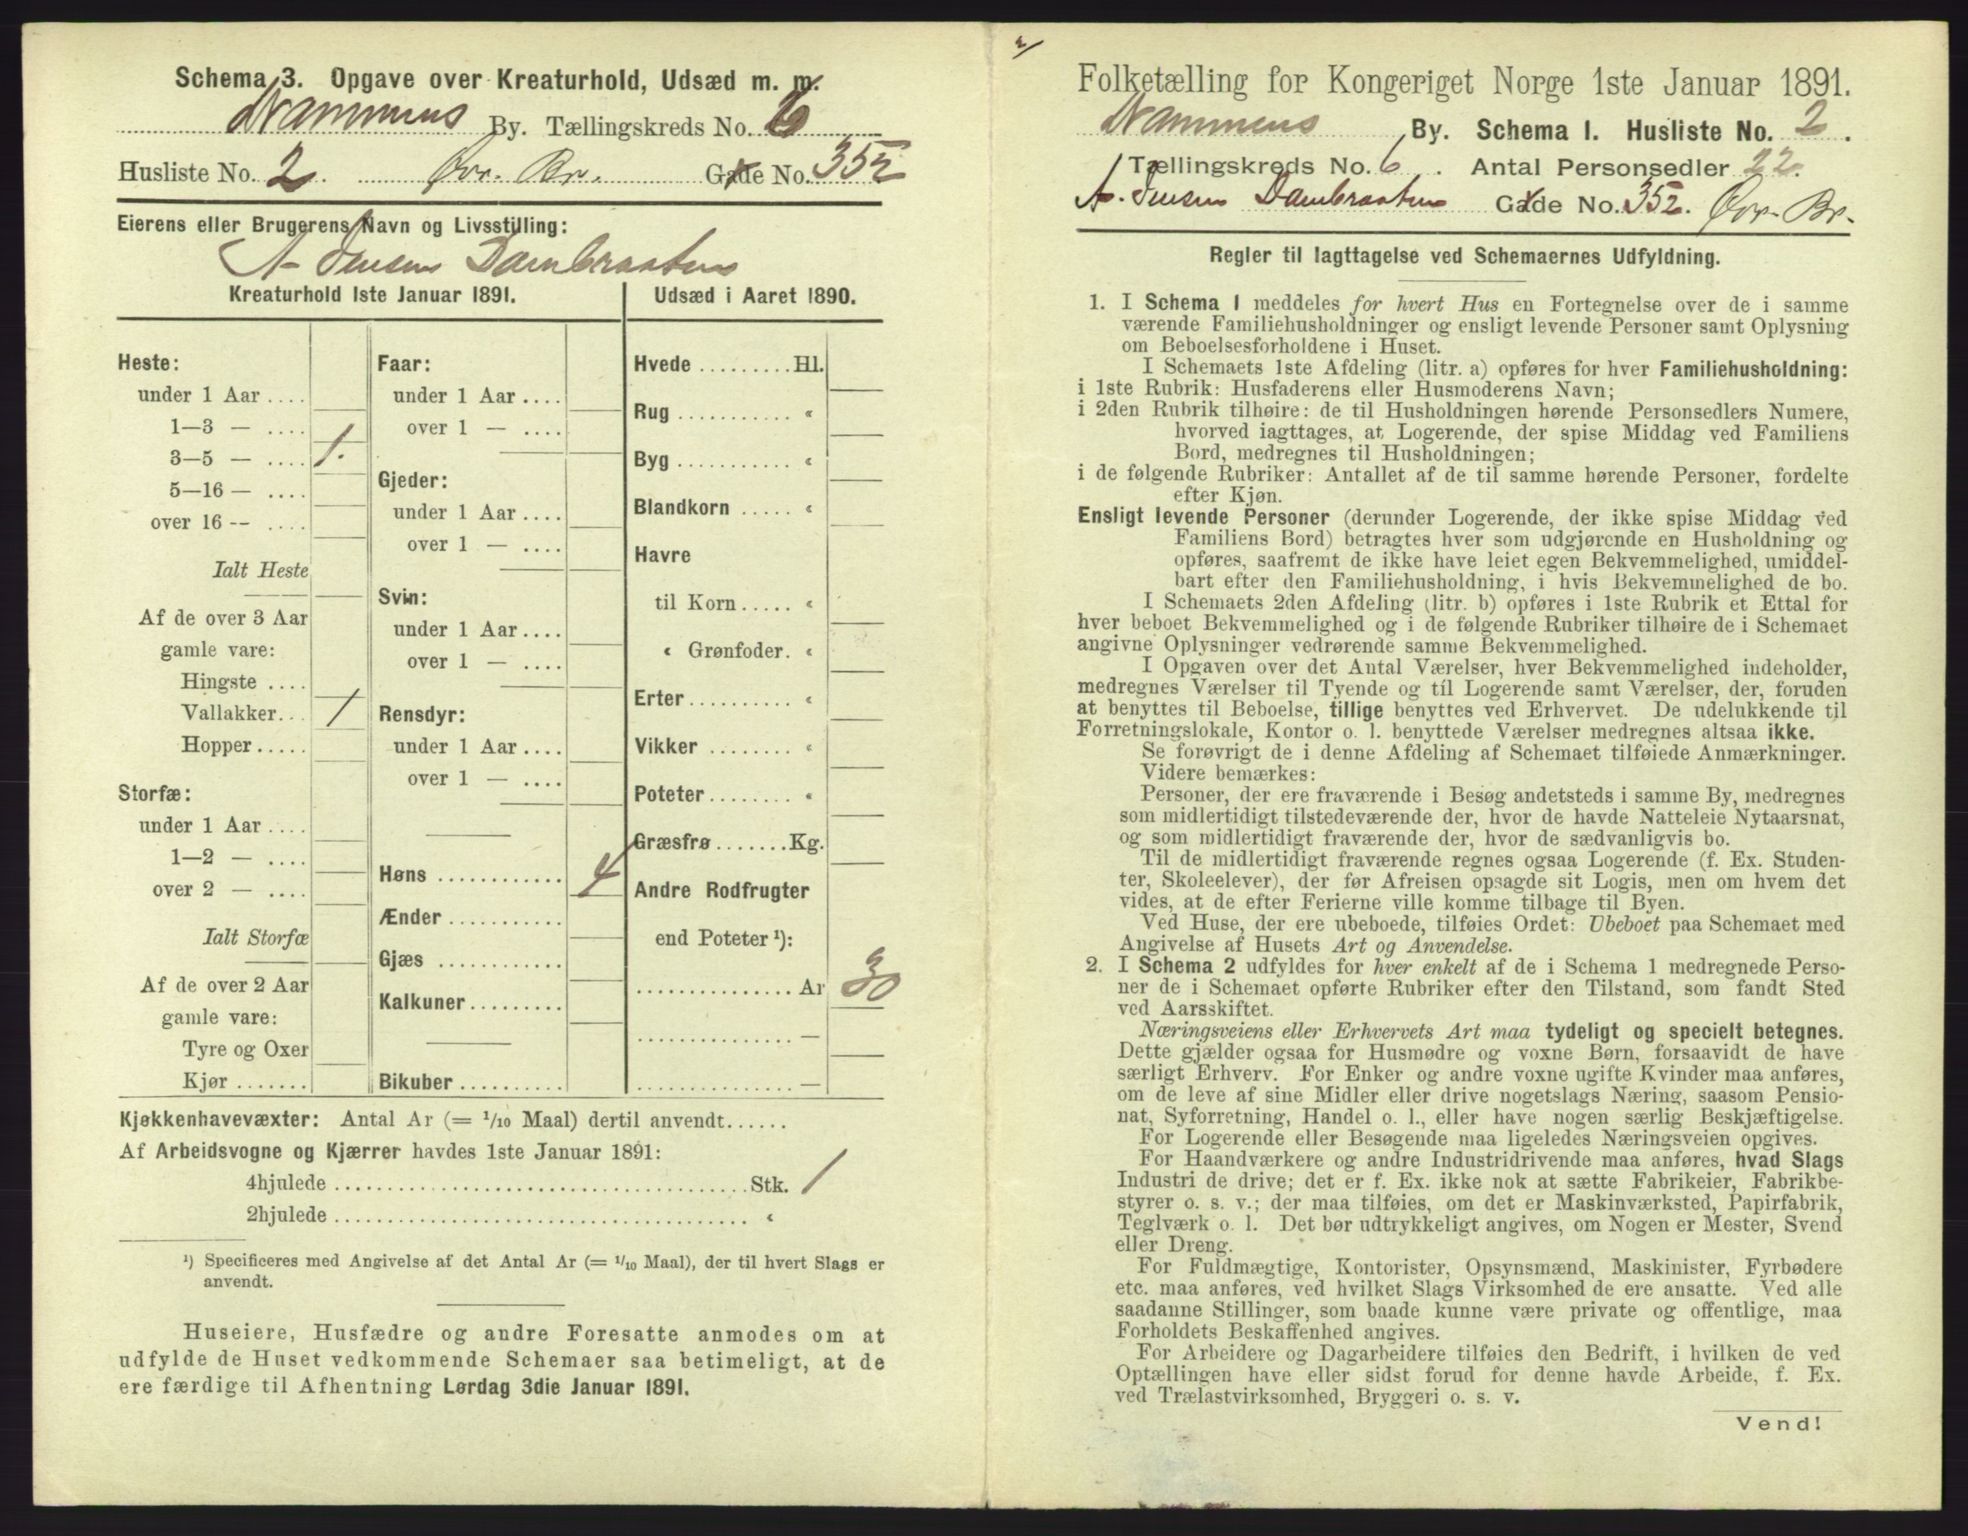 Schema 3. Opgave over Kreaturhold, Udsæd m. m.
Drammens By. Tællingskreds No. 6
Husliste No. 2. Øvr. Br. Gade No. 352
Eierens eller Brugerens Navn og Livsstilling:
A. Jensen Dambraaten
Kreaturhold 1ste Januar 1891.
Heste:
under 1 Aar ....
1—3 — ....
3—5 — .... 1.
5—16 — ....
over 16 -- ....
Ialt Heste
Af de over 3 Aar
gamle vare:
Hingste ....
Vallakker... 1
Hopper.....
Storfæ:
under 1 Aar ....
1—2 — ....
over 2 — ....
Ialt Storfæ
Af de over 2 Aar
gamle vare:
Tyre og Oxer
Kjør .......
Faar:
under 1 Aar ....
over 1 — ....
Gjeder:
under 1 Aar ....
over 1 — ....
Svin:
under 1 Aar ....
over 1 — ....
Rensdyr:
under 1 Aar ....
over 1 — ....
Høns ............ 4
Ænder ...........
Gjæs ............
Kalkuner.........
Bikuber ..........
Udsæd i Aaret 1890.
Hvede .........Hl.
Rug ........... «
Byg ........... «
Blandkorn ..... «
Havre
til Korn ..... «
« Grønfoder. «
Erter.......... «
Vikker ........ «
Poteter........ «
Græsfrø.......Kg.
Andre Rodfrugter
end Poteter ¹):
...............Ar 30
...............—
...............—
Kjøkkenhavevæxter: Antal Ar (= 1/10 Maal) dertil anvendt......
Af Arbeidsvogne og Kjærrer havdes 1ste Januar 1891:
4hjulede ........................................Stk. 1
2hjulede ........................................ «
¹) Specificeres med Angivelse af det Antal Ar (= 1/10 Maal), der til hvert Slags er
anvendt.
Huseiere, Husfædre og andre Foresatte anmodes om at
udfylde de Huset vedkommende Schemaer saa betimeligt, at de
ere færdige til Afhentning Lørdag 3die Januar 1891.
Folketælling for Kongeriget Norge 1ste Januar 1891.
Drammens By. Schema 1. Husliste No. 2.
Tællingskreds No. 6. Antal Personsedler 22.
A. Jensen Dambraaten Gade No. 352. Øvr. Br.
Regler til Iagttagelse ved Schemaernes Udfyldning.
1. I Schema 1 meddeles for hvert Hus en Fortegnelse over de i samme
værende Familiehusholdninger og ensligt levende Personer samt Oplysning
om Beboelsesforholdene i Huset.
I Schemaets 1ste Afdeling (litr. a) opføres for hver Familiehusholdning:
i 1ste Rubrik: Husfaderens eller Husmoderens Navn;
i 2den Rubrik tilhøire: de til Husholdningen hørende Personsedlers Numere,
hvorved iagttages, at Logerende, der spise Middag ved Familiens
Bord, medregnes til Husholdningen;
i de følgende Rubriker: Antallet af de til samme hørende Personer, fordelte
efter Kjøn.
Ensligt levende Personer (derunder Logerende, der ikke spise Middag ved
Familiens Bord) betragtes hver som udgjørende en Husholdning og
opføres, saafremt de ikke have leiet egen Bekvemmelighed, umiddel-
bart efter den Familiehusholdning, i hvis Bekvemmelighed de bo.
I Schemaets 2den Afdeling (litr. b) opføres i 1ste Rubrik et Ettal for
hver beboet Bekvemmelighed og i de følgende Rubriker tilhøire de i Schemaet
angivne Oplysninger vedrørende samme Bekvemmelighed.
I Opgaven over det Antal Værelser, hver Bekvemmelighed indeholder,
medregnes Værelser til Tyende og til Logerende samt Værelser, der, foruden
at benyttes til Beboelse, tillige benyttes ved Erhvervet. De udelukkende til
Forretningslokale, Kontor o. l. benyttede Værelser medregnes altsaa ikke.
Se forøvrigt de i denne Afdeling af Schemaet tilføiede Anmærkninger.
Videre bemærkes:
Personer, der ere fraværende i Besøg andetsteds i samme By, medregnes
som midlertidigt tilstedeværende der, hvor de havde Natteleie Nytaarsnat,
og som midlertidigt fraværende der, hvor de sædvanligvis bo.
Til de midlertidigt fraværende regnes ogsaa Logerende (f. Ex. Studen-
ter, Skoleelever), der før Afreisen opsagde sit Logis, men om hvem det
vides, at de efter Ferierne ville komme tilbage til Byen.
Ved Huse, der ere ubeboede, tilføies Ordet: Ubeboet paa Schemaet med
Angivelse af Husets Art og Anvendelse.
2. I Schema 2 udfyldes for hver enkelt af de i Schema 1 medregnede Perso-
ner de i Schemaet opførte Rubriker efter den Tilstand, som fandt Sted
ved Aarsskiftet.
Næringsveiens eller Erhvervets Art maa tydeligt og specielt betegnes.
Dette gjælder ogsaa for Husmødre og voxne Børn, forsaavidt de have
særligt Erhverv. For Enker og andre voxne ugifte Kvinder maa anføres,
om de leve af sine Midler eller drive nogetslags Næring, saasom Pensio-
nat, Syforretning, Handel o. l., eller have nogen særlig Beskjæftigelse.
For Logerende eller Besøgende maa ligeledes Næringsveien opgives.
For Haandværkere og andre Industridrivende maa anføres, hvad Slags
Industri de drive; det er f. Ex. ikke nok at sætte Fabrikeier, Fabrikbe-
styrer o. s. v.; der maa tilføies, om det er Maskinværksted, Papirfabrik,
Teglværk o. l. Det bør udtrykkeligt angives, om Nogen er Mester, Svend
eller Dreng.
For Fuldmægtige, Kontorister, Opsynsmænd, Maskinister, Fyrbødere
etc. maa anføres, ved hvilket Slags Virksomhed de ere ansatte. Ved alle
saadanne Stillinger, som baade kunne være private og offentlige, maa
Forholdets Beskaffenhed angives.
For Arbeidere og Dagarbeidere tilføies den Bedrift, i hvilken de ved
Optællingen have eller sidst forud for denne havde Arbeide, f. Ex.
ved Trælastvirksomhed, Bryggeri o. s. v.
Vend!